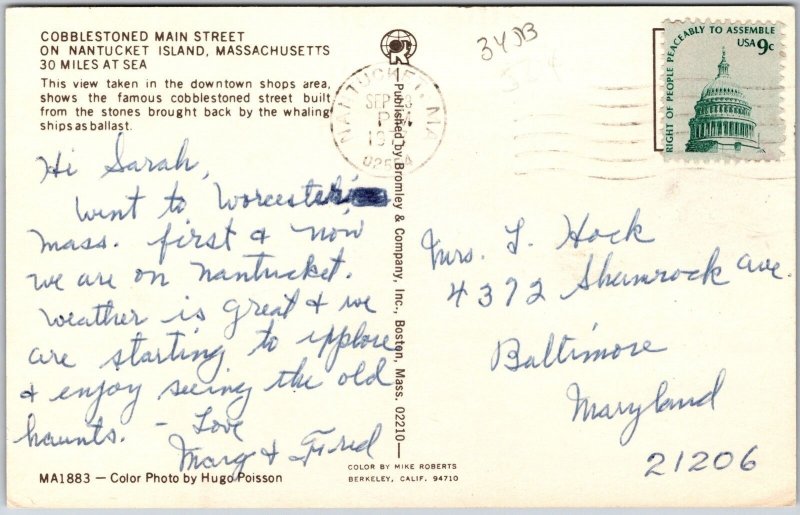 COBBLESTONED MAIN STREET
ON NANTUCKET ISLAND, MASSACHUSETTS
30 MILES AT SEA
This view taken in the downtown shops area,
shows the famous cobblestoned street built
from the stones brought back by the whaling
ships as ballast.
Hi Sarah,
Went to Worcester
Mass. first & now
we are on Nantucket.
Weather is great & we
are starting to xplore
& enjoy seeing the old
haunts. – Love
Marg & Fred
MA1883 — Color Photo by Hugo Poisson
Published by Bromley & Company, Inc., Boston, Mass. 02210
COLOR BY MIKE ROBERTS
BERKELEY, CALIF. 94710
NANTUCKET, MA
SEP
PM
RIGHT OF PEOPLE PEACEABLY TO ASSEMBLE
USA 9c
Mrs. L. Hock
4372 Shamrock Ave.
Baltimore
Maryland
21206